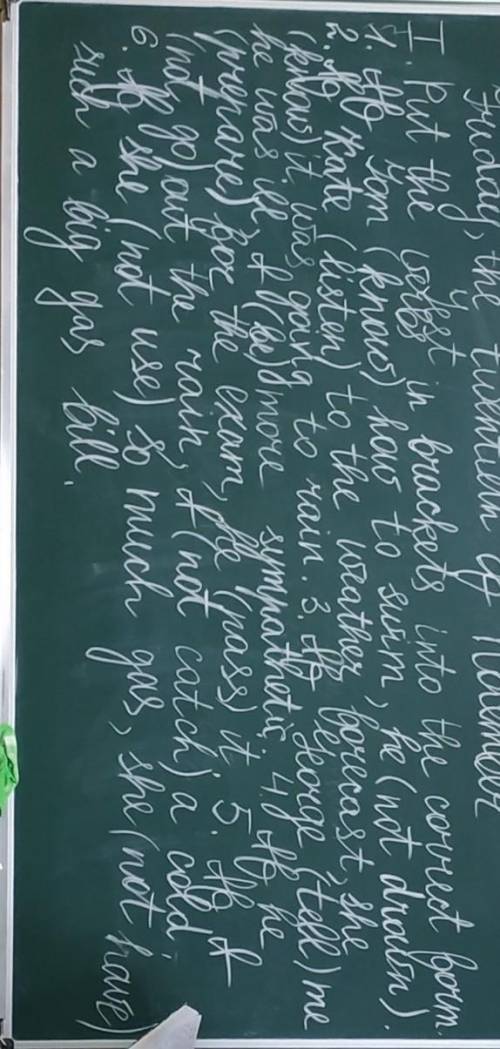 Friday, the twentieth of November
I. Put the verbs in brackets into the correct form.
1. If Yan (know) how to swim, he (not drown).
2. If Kate (listen) to the weather forecast, she
(know) it was going to rain. 3. If George (tell) me
he was ill, I (be) more sympathetic. 4. If he
(prepare) for the exam, he (pass) it 5. If I
(not go) out the rain, I (not catch) a cold
6. If she (not use) so much gas, she (not have)
such a big gas bill.